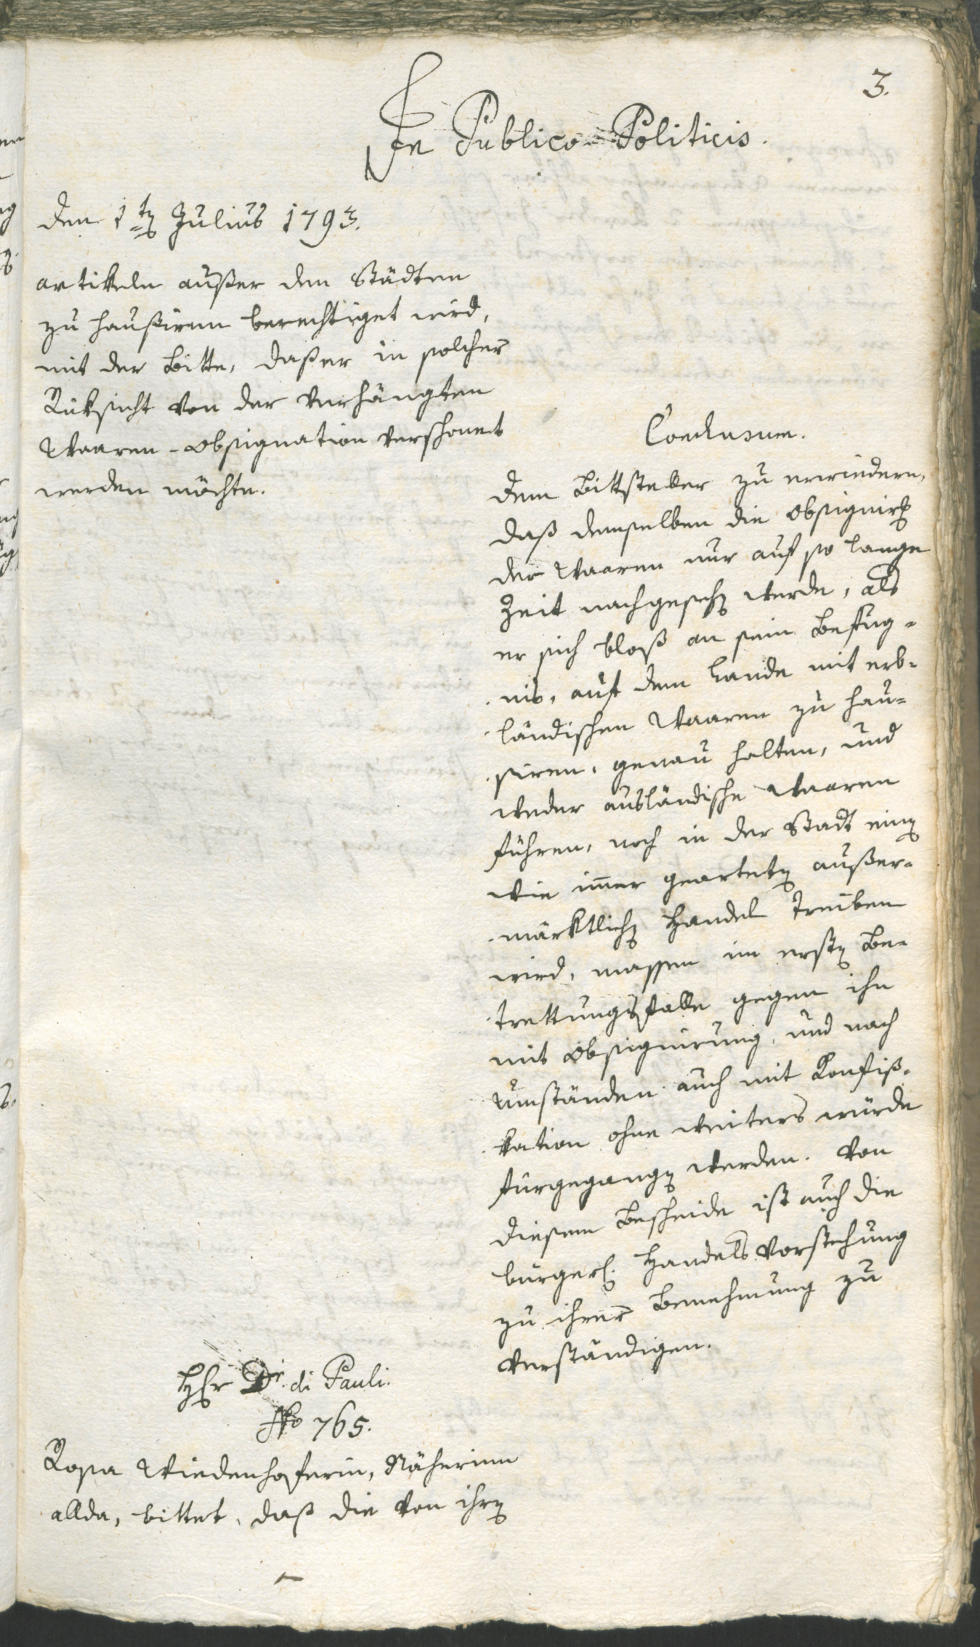 3.
In Publico-Politicis.
den 1ten Julius 1793.
artikeln außer den Städten
zu hausiren berechtiget wird,
mit der Bitte, daß er in solcher
Rüksicht von der verhängten
Waaren-Obsignation verschonet
werden möchte.
Conclusum.
dem Bittsteller zu erwiedern,
daß demselben die Obsignirg
der Waaren nur auf so lange
Zeit nachgesehen werde, als
er sich bloß an sein Befug-
niß, auf dem Lande mit erb-
ländischen Waaren zu hau-
siren, genau halten, und
weder ausländische Waaren
führen, noch in der Stadt einen
wie imer gearteten außer-
märktlichen Handel treiben
wird, massen im ersten Be-
trettungsfalle gegen ihn
mit Obsignirung, und nach
Umständen auch mit Konfis-
kation ohne weiters würde
fürgegangen werden. Von
diesem Bescheide ist auch die
bürgerl. Handels Vorstehung
zu ihrer Benehmung zu
verständigen.
Hr Dr. di Pauli.
No 765.
Rosa Wiedenhoferin, Näherinn
allda, bittet, daß die von ihren